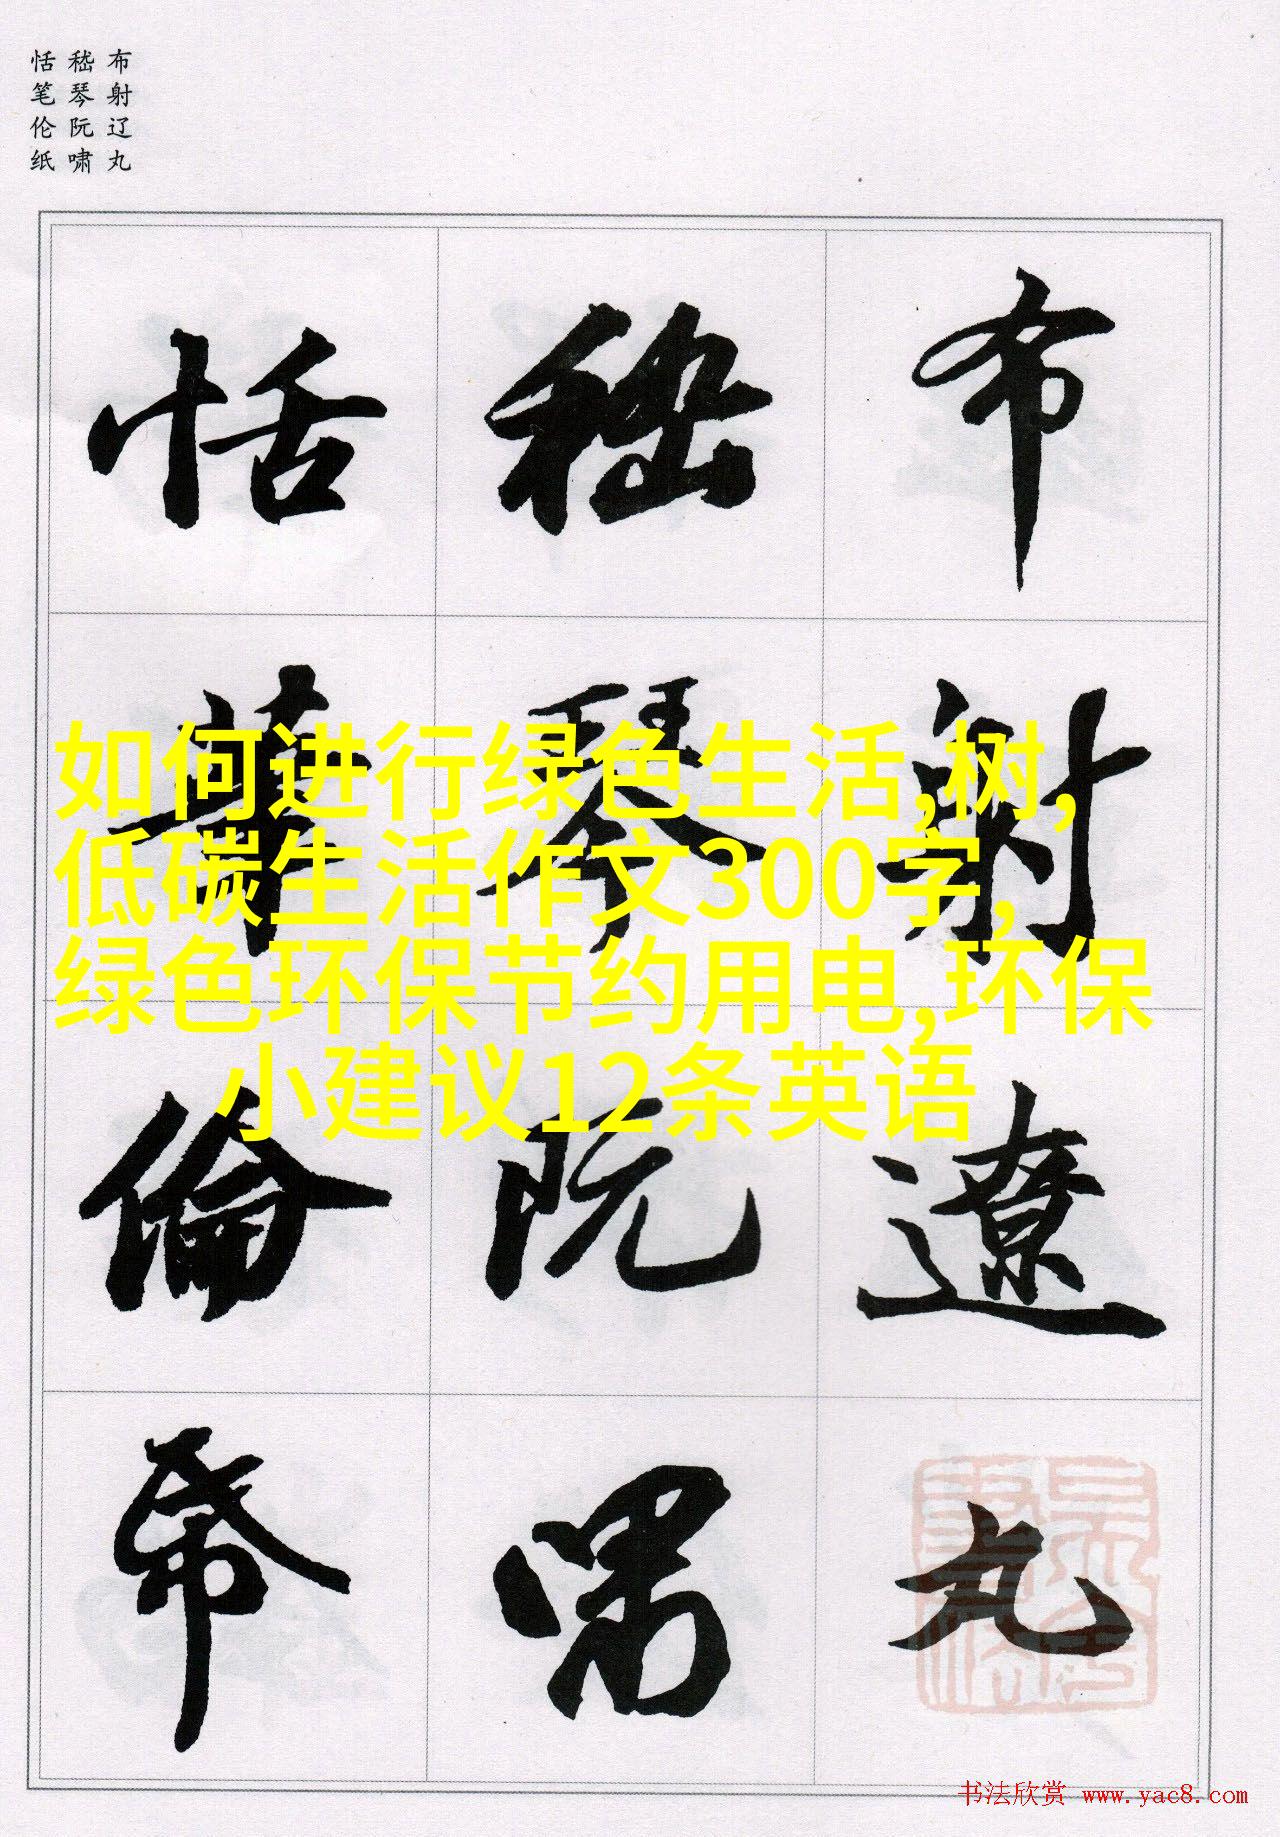 布射辽丸
嵇琴阮啸
恬笔伦纸
布射遼丸
嵇琴阮啸
恬筆倫帋
如何进行绿色生活,树,
低碳生活作文300字,
绿色环保节约用电,环保
小建议12条英语
书法欣赏 www.yac8.com